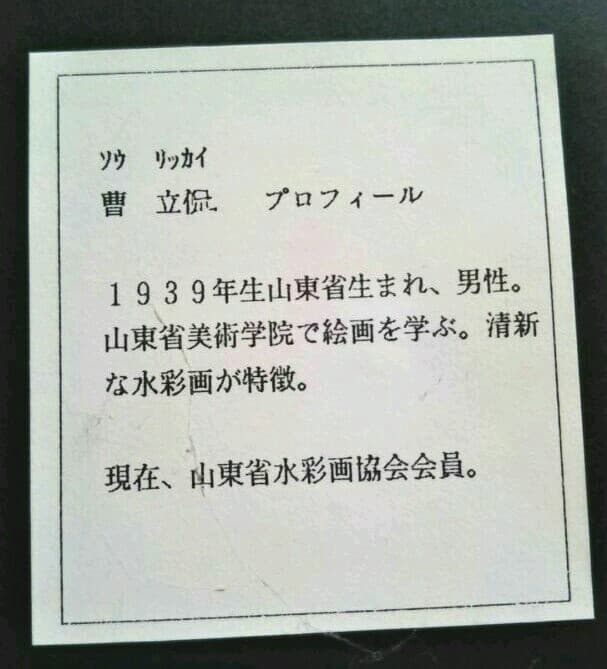 ソウ リッカイ
曹 立侃 プロフィール
１９３９年生山東省生まれ、男性。
山東省美術学院で絵画を学ぶ。清新
な水彩画が特徴。
現在、山東省水彩画協会会員。